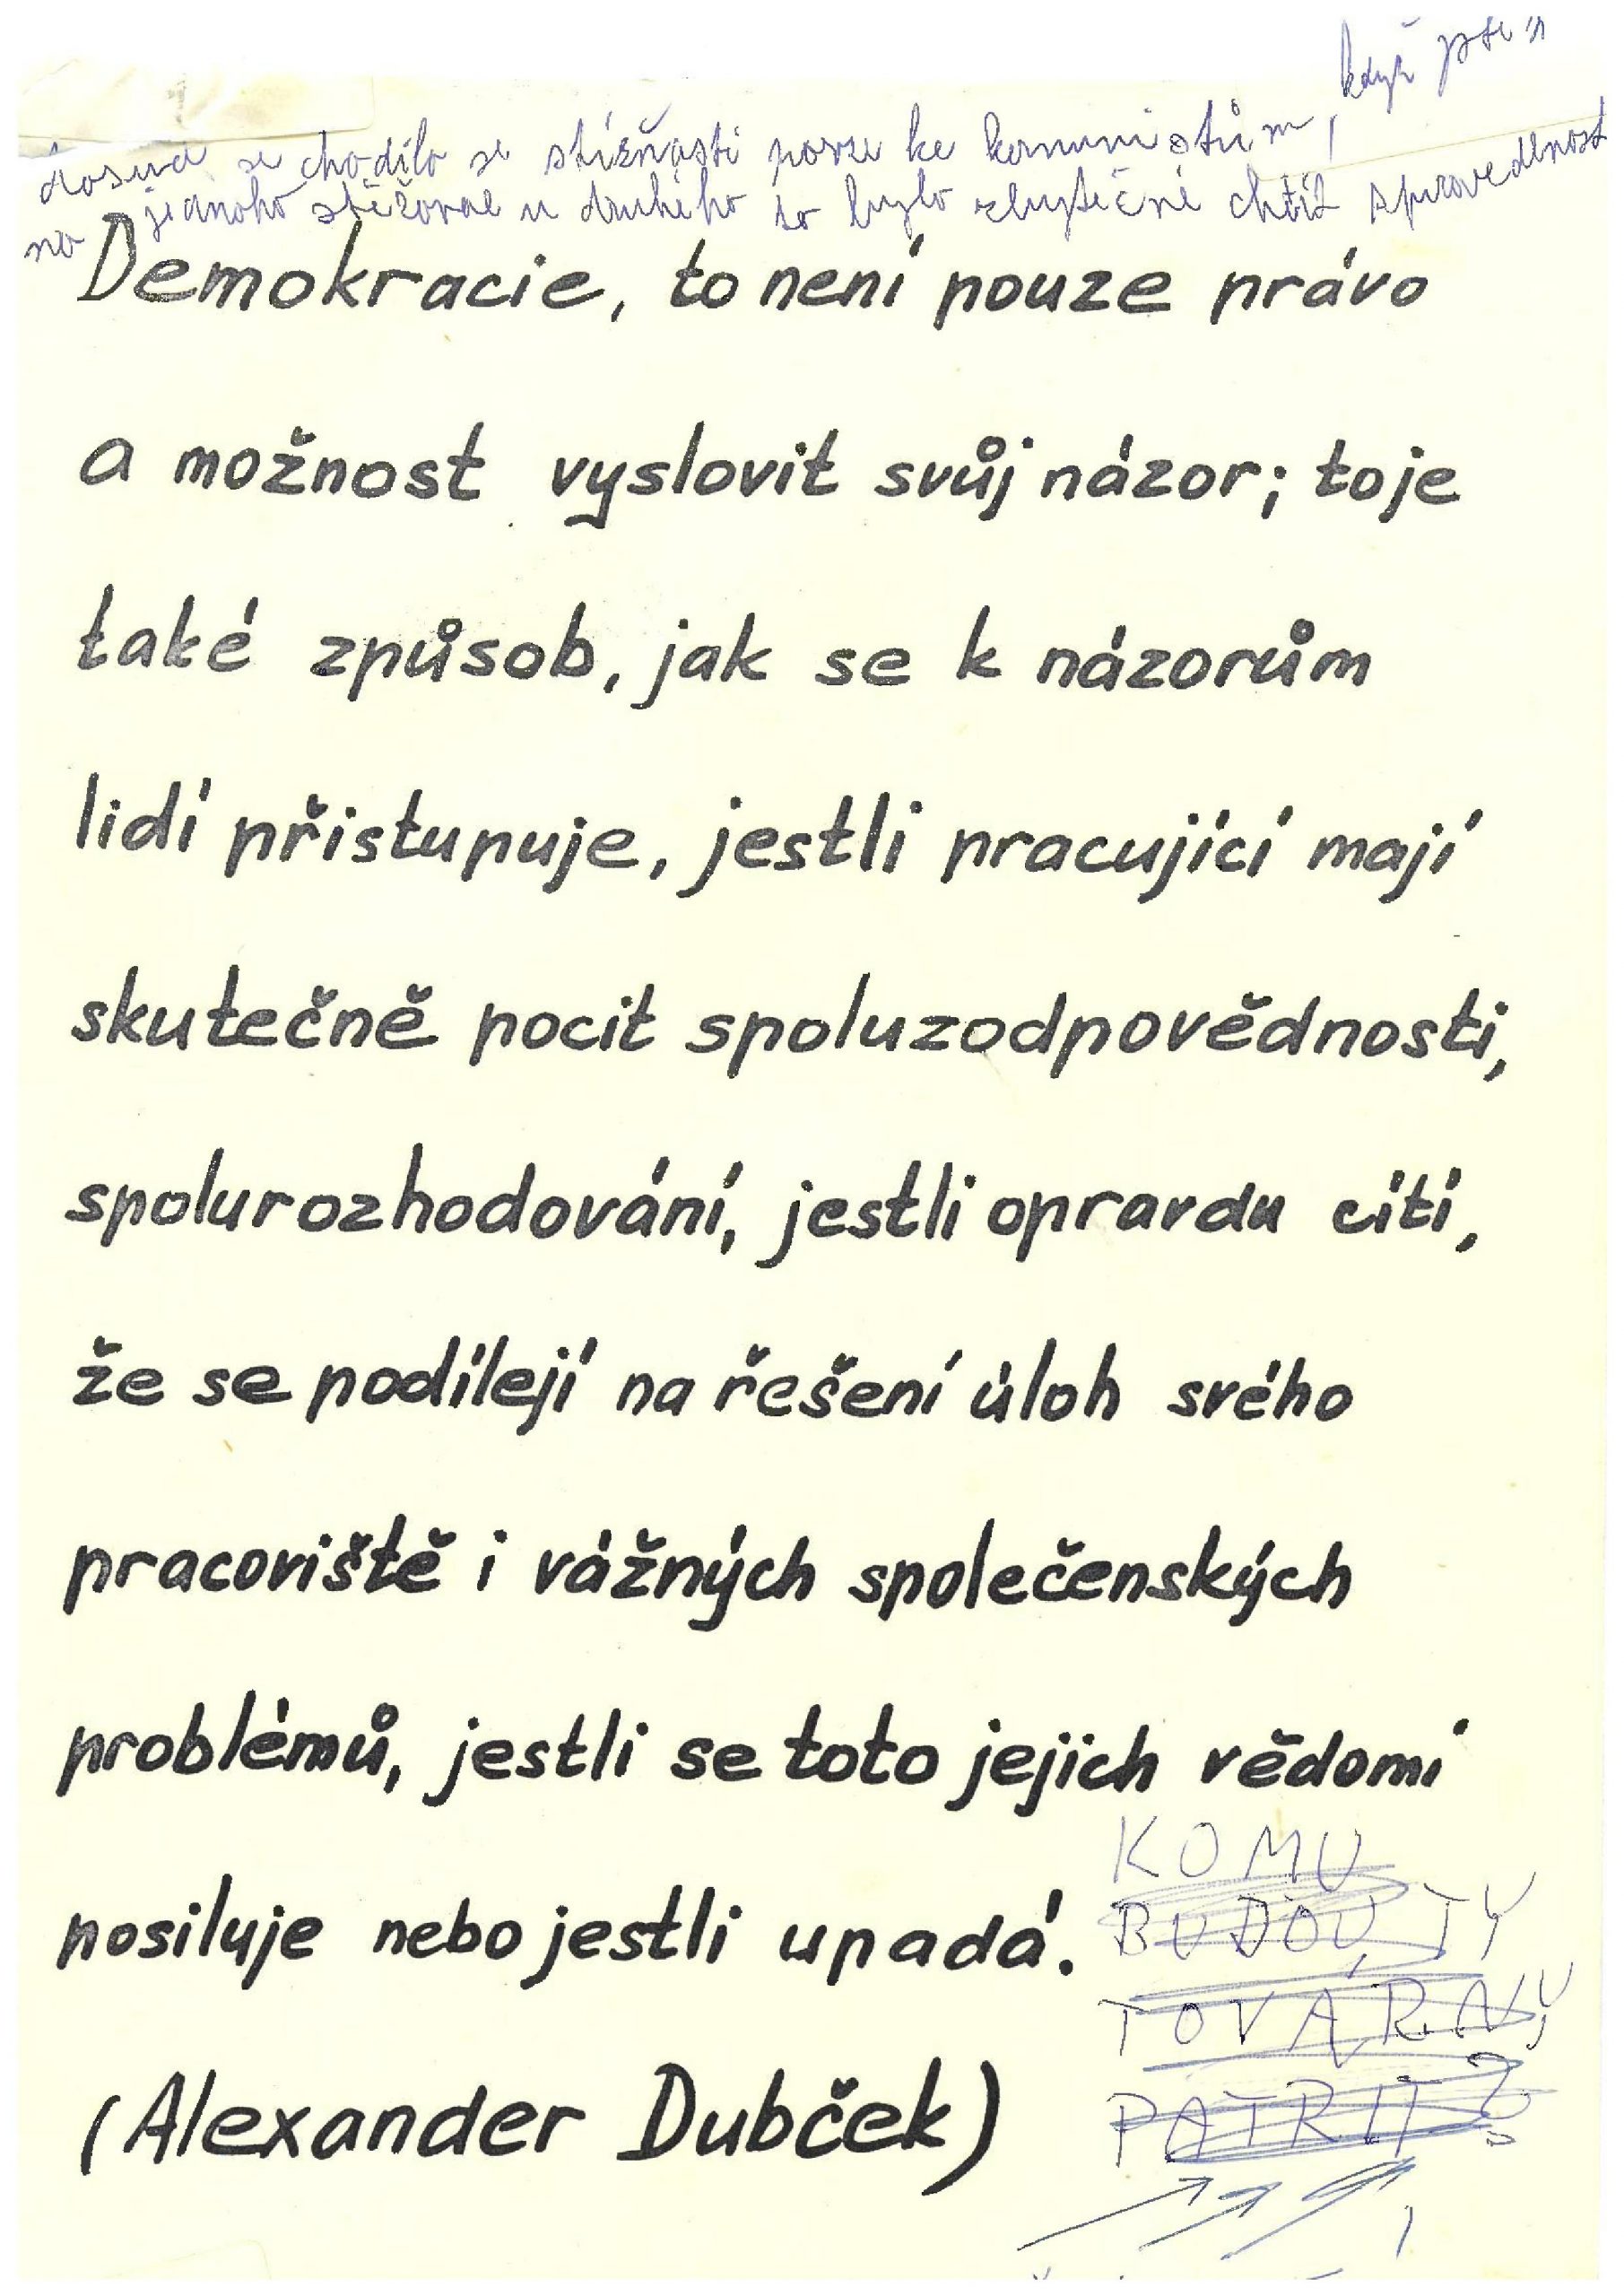 když jste si
dosud se chodilo se stížností pouze ke komunistům,
na jednoho stěžoval u druhého to bylo zbytečné chtít spravedlnost
Demokracie, to není pouze právo
a možnost vyslovit svůj názor; to je
také způsob, jak se k názorům
lidí přistupuje, jestli pracující mají
skutečně pocit spoluzodpovědnosti,
spolurozhodování, jestli opravdu cítí,
že se podílejí na řešení úloh svého
pracoviště i vážných společenských
problémů, jestli se toto jejich vědomí
posiluje nebo jestli upadá.
(Alexander Dubček)
KOMU
BUDOU TY
TOVÁRNY
PATŘIT?